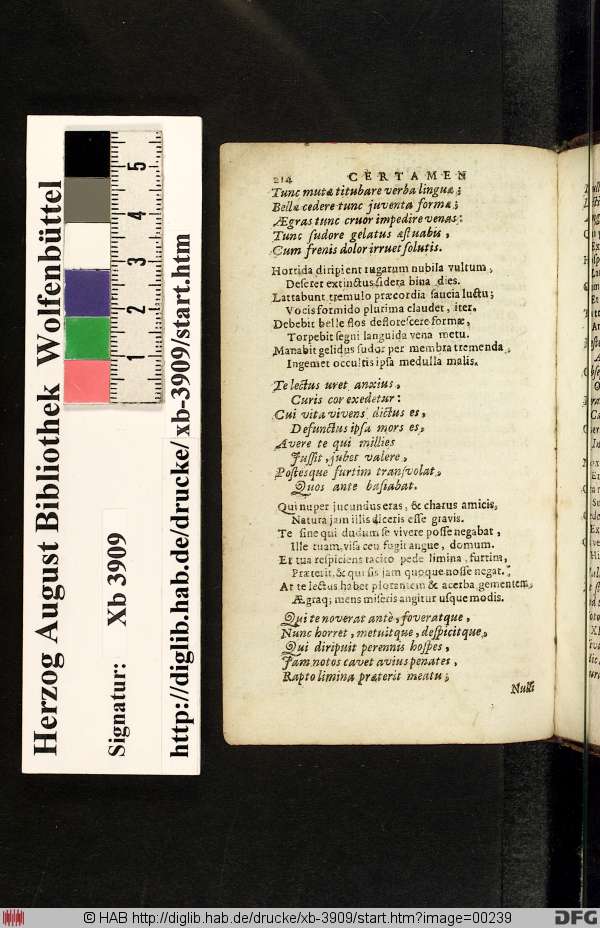 Herzog August Bibliothek Wolfenbüttel
Signatur: Xb 3909
http://diglib.hab.de/drucke/xb-3909/start.htm
1 2 3 4 5
214 CERTAMEN
Tunc mutæ titubare verba linguæ;
Bella cedere tunc juventa formæ;
Ægras tunc cruor impedire venas:
Tunc sudore gelatus æstuabis,
Cum frenis dolor irruet solutis.
Horrida diripient rugarum nubila vultum,
Deseret extinctus sidera bina dies.
Lattabunt tremulo præcordia saucia luctu;
Vocis formido plurima claudet, iter.
Debebit belle flos deflorescere formæ,
Torpebit segni languida vena metu.
Manabit gelidus sudor per membra tremenda,
Ingemet occultis ipsa medulla malis.
Te lectus uret anxius,
Curis cor exedetur:
Cui vita vivens dictus es,
Defunctus ipsa mors es,
Avere te qui millies
Jussit, jubet valere,
Postesque furtim transvolat,
Quos ante basiabat.
Qui nuper jucundus eras, & charus amicis,
Natura jam illis diceris esse gravis.
Te sine qui dudum se vivere posse negabat,
Ille tuam, visa ceu fugit angue, domum.
Et tua respiciens tacito pede limina, furtim,
Præterit, & qui sis jam quoque nosse negat.
At te lectus habet plorantem & acerba gementem,
Ægraq; mens miseris angitur usque modis.
Qui te noverat antè, foveratque,
Nunc horret, metuitque, despicitque,
Qui diripuit perennis hospes,
Jam notos cavet avius penates,
Rapto limina præterit meatu;
Nulli
© HAB http://diglib.hab.de/drucke/xb-3909/start.htm?image=00239
DFG